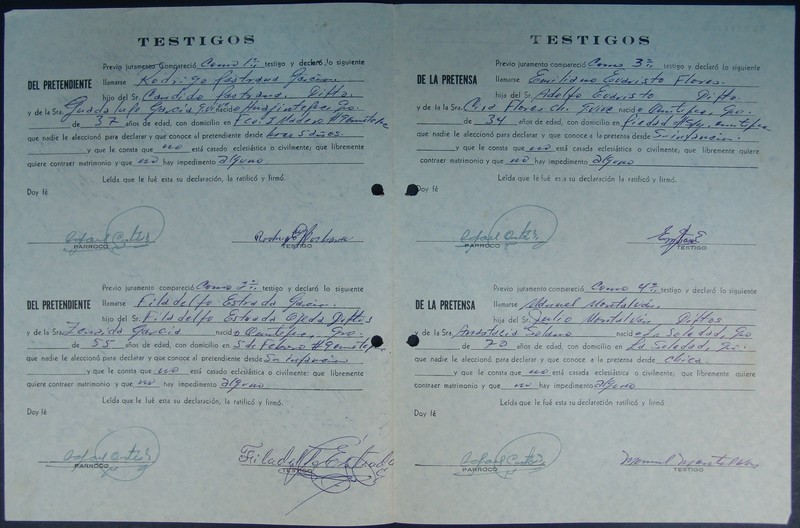 TESTIGOS
Previo juramento compareció Como 1º, testigo y declaró lo siguiente
DEL PRETENDIENTE llamarse Rodrigo Pastrana Garcia
hijo del Sr. Candido Pastrana Difto.
y de la Sra. Guadalupe Garcia Gro.
de 37 años de edad, con domicilio en Fco. I. Madero #9
que nadie le aleccionó para declarar y que conoce al pretendiente desde hace 5 años.
y que le consta que no está casado eclesiástica o civilmente; que libremente
quiere contraer matrimonio y que no hay impedimento alguno
Leída que le fué esta su declaración, la ratificó y firmó.
Doy fé
Rafael Cortés
PARROCO
TESTIGO
Previo juramento compareció Como 2º, testigo y declaró lo siguiente
DEL PRETENDIENTE llamarse Filadelfo Estrada Garcia
hijo del Sr. Filadelfo Estrada Ojeda Diftos
y de la Sra. Zenaida Garcia nacido Ometepec, Gro.
de 55 años de edad, con domicilio en 5 de Febrero #9 Ometepec
que nadie le aleccionó para declarar y que conoce al pretendiente desde Su infancia
y que le consta que no está casado eclesiástica o civilmente: que libremente
quiere contraer matrimonio y que no hay impedimento alguno
Leída que le fué esta su declaración, la ratificó y firmó.
Doy fé
Rafael Cortés
PARROCO
Filadelfo Estrada
TESTIGO
TESTIGOS
Previo juramento compareció Como 3º, testigo y declaró lo siguiente
DE LA PRETENSA llamarse Emiliano Evaristo Flores
hijo del Sr. Adolfo Evaristo Difto.
y de la Sra. Flores nacido Ometepec, Gro.
de 34 años de edad, con domicilio en Piedad Ometepec
que nadie le aleccionó para declarar y que conoce a la pretensa desde Su infancia.
y que le consta que no está casada eclesiástica o civilmente; que libremente
quiere contraer matrimonio y que no hay impedimento alguno
Leída que le fué esta su declaración, la ratificó y firmó.
Doy fé
Rafael Cortés
PARROCO
TESTIGO
Previo juramento compareció Como 4º, testigo y declaró lo siguiente
DE LA PRETENSA llamarse Manuel Montalván
hijo del Sr. Julio Montalván Diftos
y de la Sra. Anastacia Solano nacido La Soledad, Gro
de 70 años de edad, con domicilio en La Soledad, Gro.
que nadie le aleccionó para declarar y que conoce a la pretensa desde chica
y que le consta que no está casada eclesiástica o civilmente; que libremente
quiere contraer matrimonio y que no hay impedimento alguno
Leída que le fué esta su declaración ratificó y firmó
Doy fé
Rafael Cortés
PARROCO
Manuel Montalván
TESTIGO